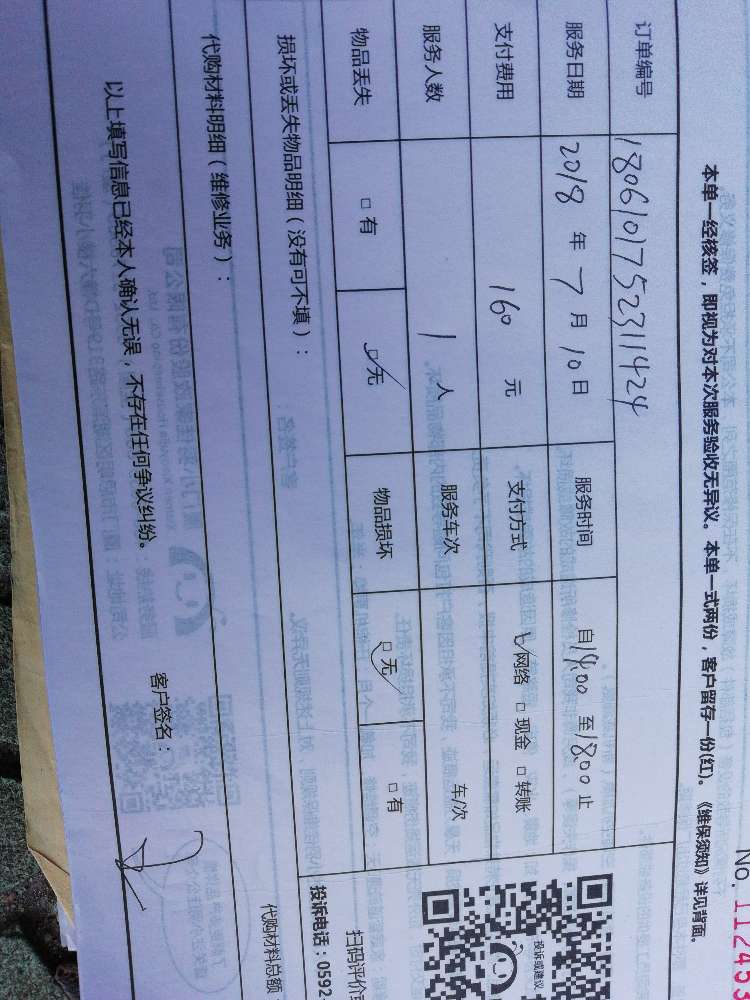 No. 112453
本单一经核签，即视为对本次服务验收无异议。本单一式两份，客户留存一份(红)。《维保须知》详见背面。
订单编号 1806101752311424
服务日期 2018 年 7 月 10 日 服务时间 自14:00 至18:00 止
支付费用 160 元 支付方式 ☑网络 □现金 □转账
服务人数 1 人 服务车次 车/次
物品丢失 □有 ☑无 物品损坏 ☑无 □有
损坏或丢失物品明细（没有可不填）：
投诉或建议
扫码评价
投诉电话：0592
代购材料明细（维修业务）：
代购材料总额
以上填写信息已经本人确认无误，不存在任何争议纠纷。 客户签名：